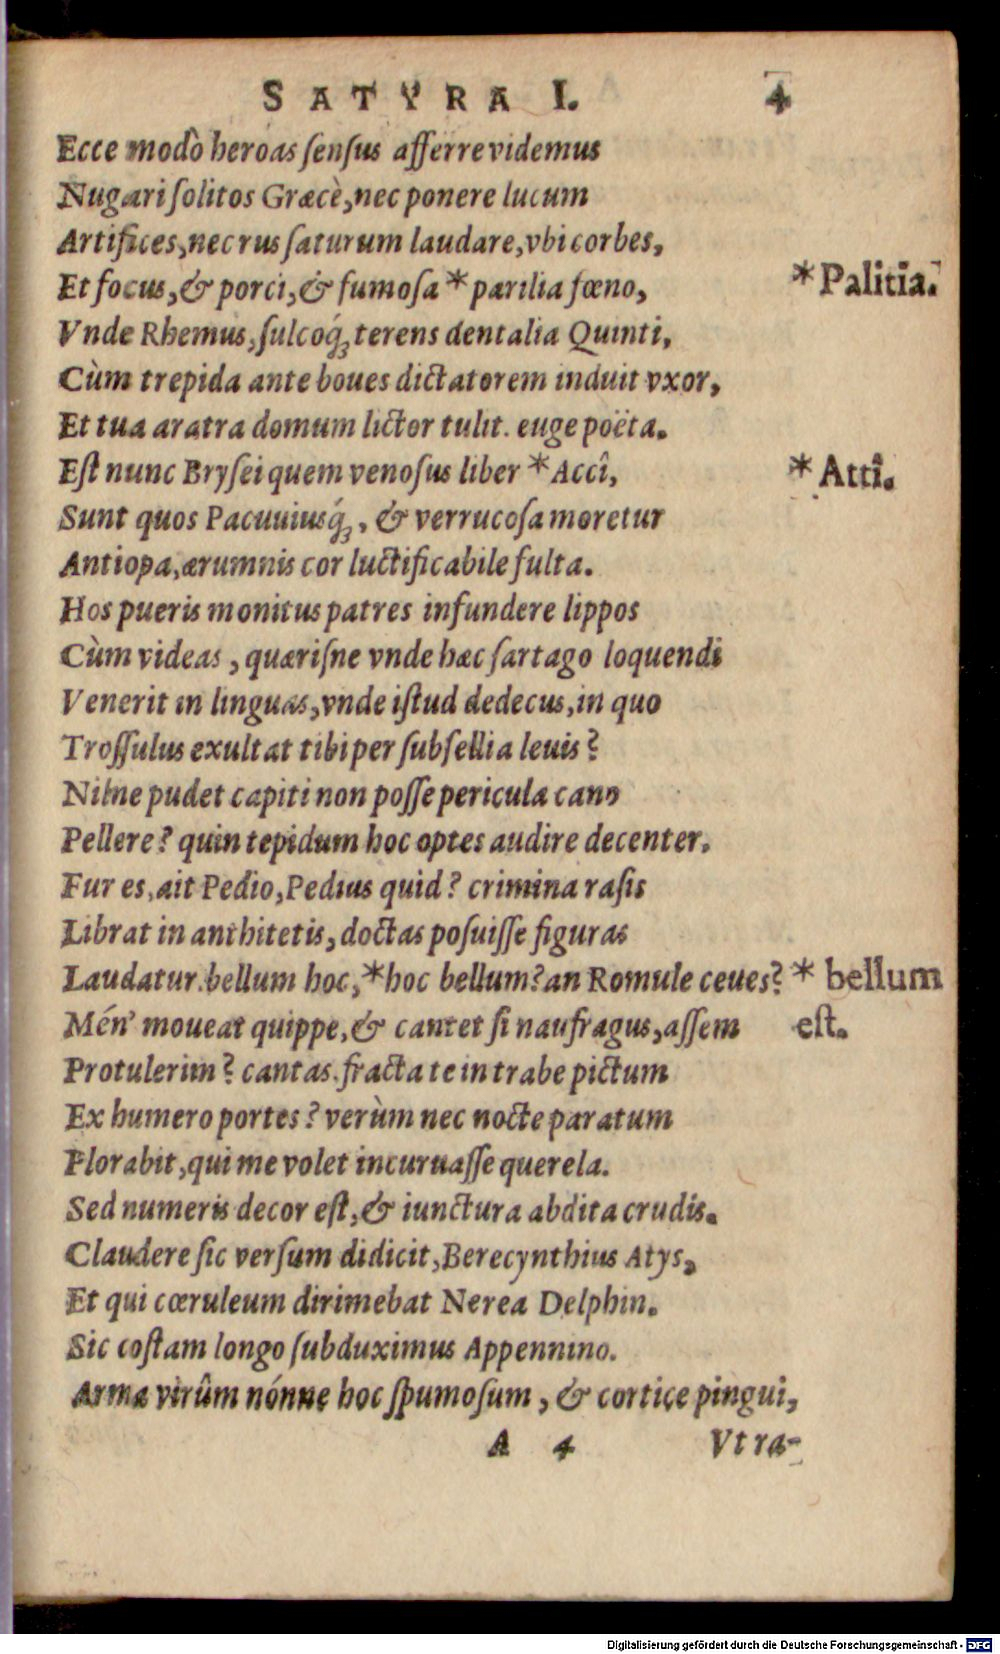 SATYRA I. 4
Ecce modò heroas ſenſus afferre videmus
Nugari ſolitos Græcè, nec ponere lucum
Artifices, nec rus ſaturum laudare, vbi corbes,
Et focus, & porci, & fumoſa * parilia fœno, * Palitia.
Vnde Rhemus, ſulcoq́; terens dentalia Quinti,
Cùm trepida ante boues dictatorem induit vxor,
Et tua aratra domum lictor tulit. euge poëta.
Eſt nunc Bryſei quem venoſus liber * Accî, * Attî.
Sunt quos Pacuuiusq́;, & verrucoſa moretur
Antiopa, ærumnis cor luctificabile fulta.
Hos pueris monitus patres infundere lippos
Cùm videas, quæriſne vnde hæc ſartago loquendi
Venerit in linguas, vnde iſtud dedecus, in quo
Troſſulus exultat tibi per ſubſellia leuis?
Nilne pudet capiti non poſſe pericula cano
Pellere? quin tepidum hoc optes audire decenter.
Fur es, ait Pedio, Pedius quid? crimina raſis
Librat in anthitetis, doctas poſuiſſe figuras
Laudatur. bellum hoc, * hoc bellum? an Romule ceues? * bellum
Mén' moueat quippe, & cantet ſi naufragus, aſſem eſt.
Protulerim? cantas. fracta te in trabe pictum
Ex humero portes? verùm nec nocte paratum
Plorabit, qui me volet incuruaſſe querela.
Sed numeris decor eſt, & iunctura abdita crudis.
Claudere ſic verſum didicit, Berecynthius Atys,
Et qui cœruleum dirimebat Nerea Delphin.
Sic coſtam longo ſubduximus Appennino.
Arma virûm nónne hoc ſpumoſum, & cortice pingui,
A 4 Vt ra-
Digitalisierung gefördert durch die Deutsche Forschungsgemeinschaft - DFG